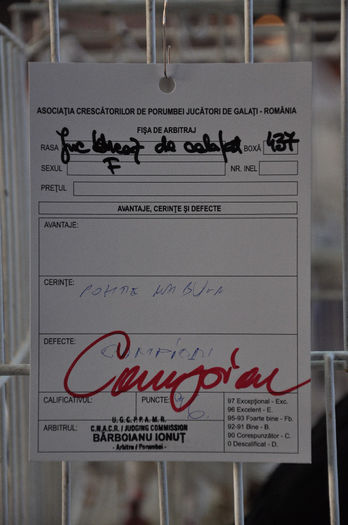 ASOCIAȚIA CRESCĂTORILOR DE PORUMBEI JUCĂTORI DE GALAȚI - ROMÂNIA
FIȘA DE ARBITRAJ
RASA de BOXĂ 437
SEXUL F NR. INEL
PREȚUL
AVANTAJE, CERINȚE ȘI DEFECTE
AVANTAJE:
CERINȚE:
DEFECTE:
CAMPION
Campion
CALIFICATIVUL: PUNCTE:
97 Excepțional - Exc.
96 Excelent - E.
95-93 Foarte bine - Fb.
92-91 Bine - B.
90 Corespunzător - C.
0 Descalificat - D.
ARBITRUL:
U.G.C.P.P.A.M.R.
C.N.A.C.R. / JUDGING COMMISSION
BĂRBOIANU IONUȚ
- Arbitru / Porumbei -